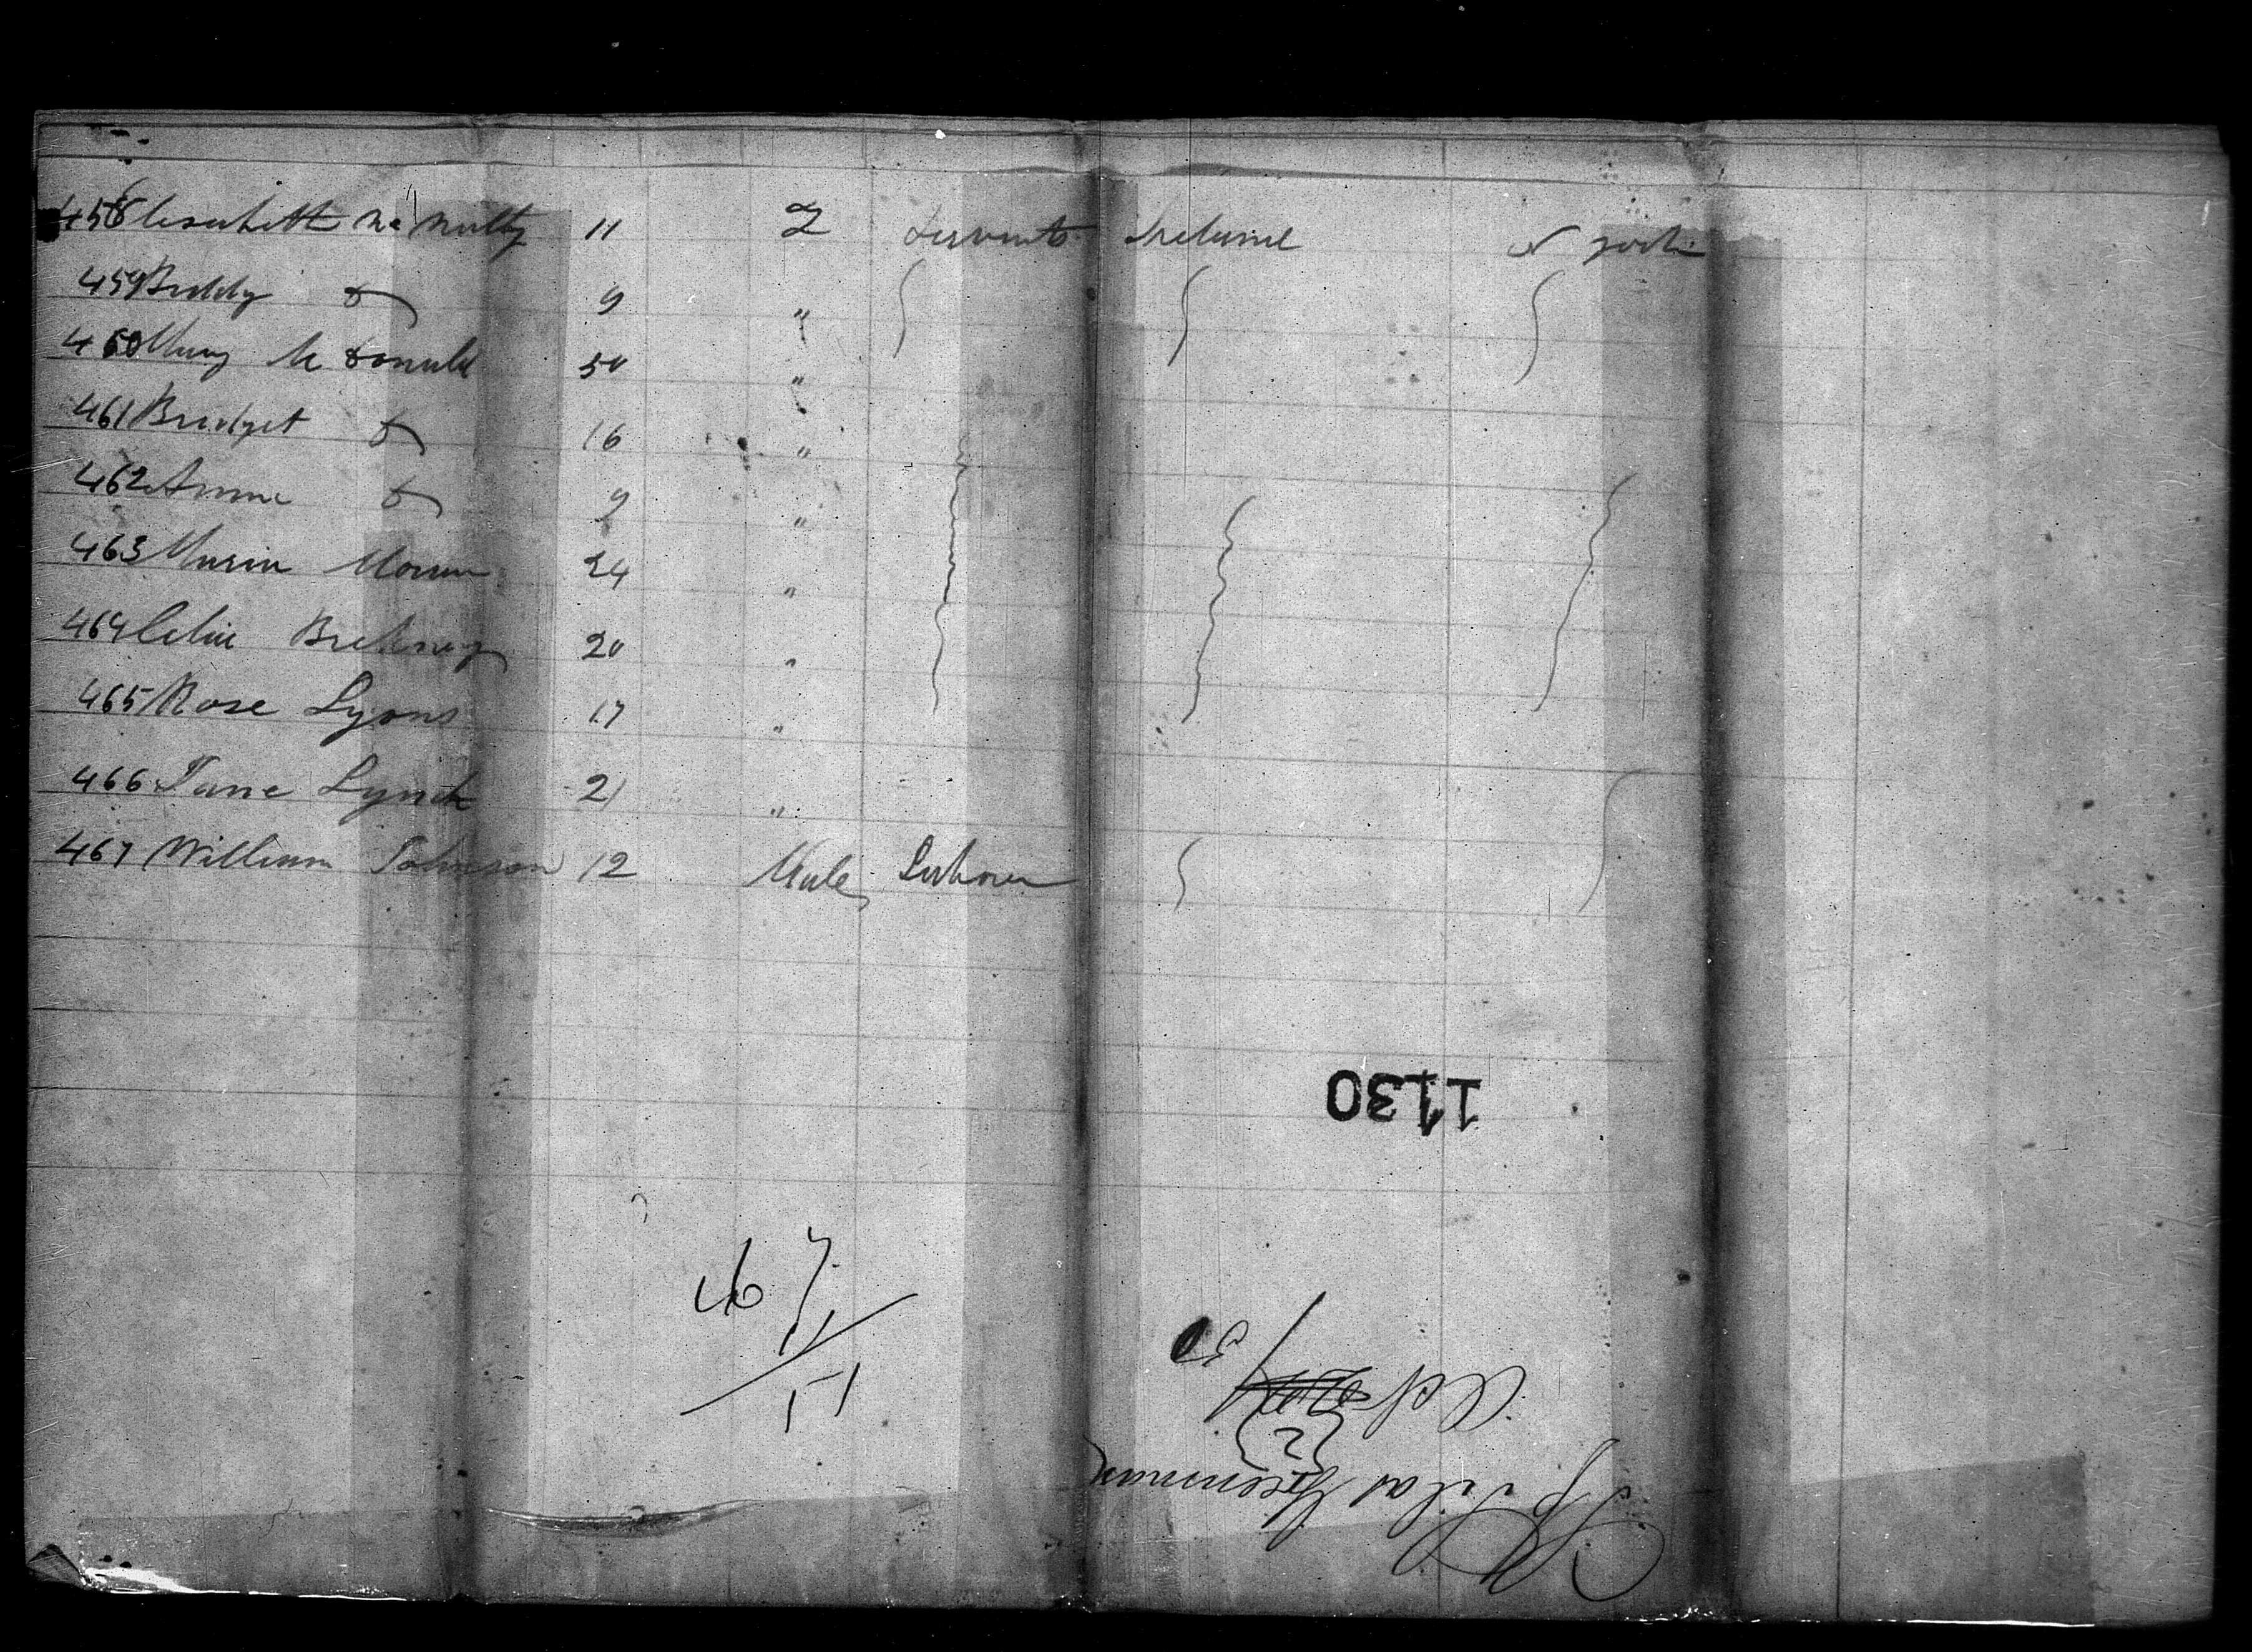 458 Elesabeth Mc Nulty 11 F Servants Ireland N York
459 Biddy Do 9 "
460 Mary Mc Donald 50 "
461 Bridget Do 16 "
462 Anne Do 9 "
463 Maria Moran 24 "
464 Celia 20 "
465 Rose Lyons 17 "
466 Jane Lynch 21 "
467 William Johnson 12 Male Labourer
1130
467
11
51
Sp Silas Greenman
2
Oct
50